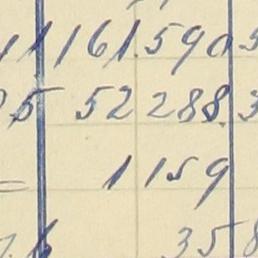 11 161.590 5
05 52 288. 3
= 1 159
358